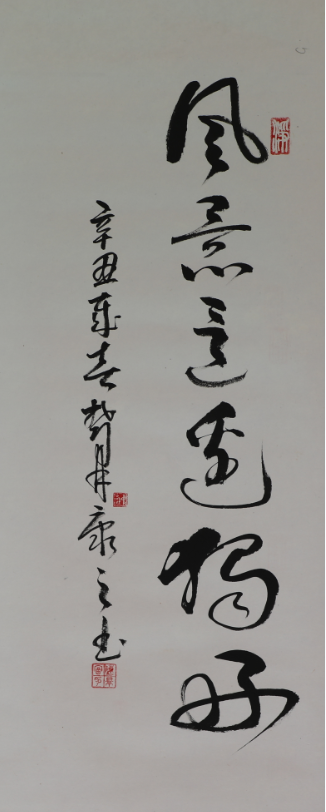 風景這邊獨好
辛丑歲春月康之書